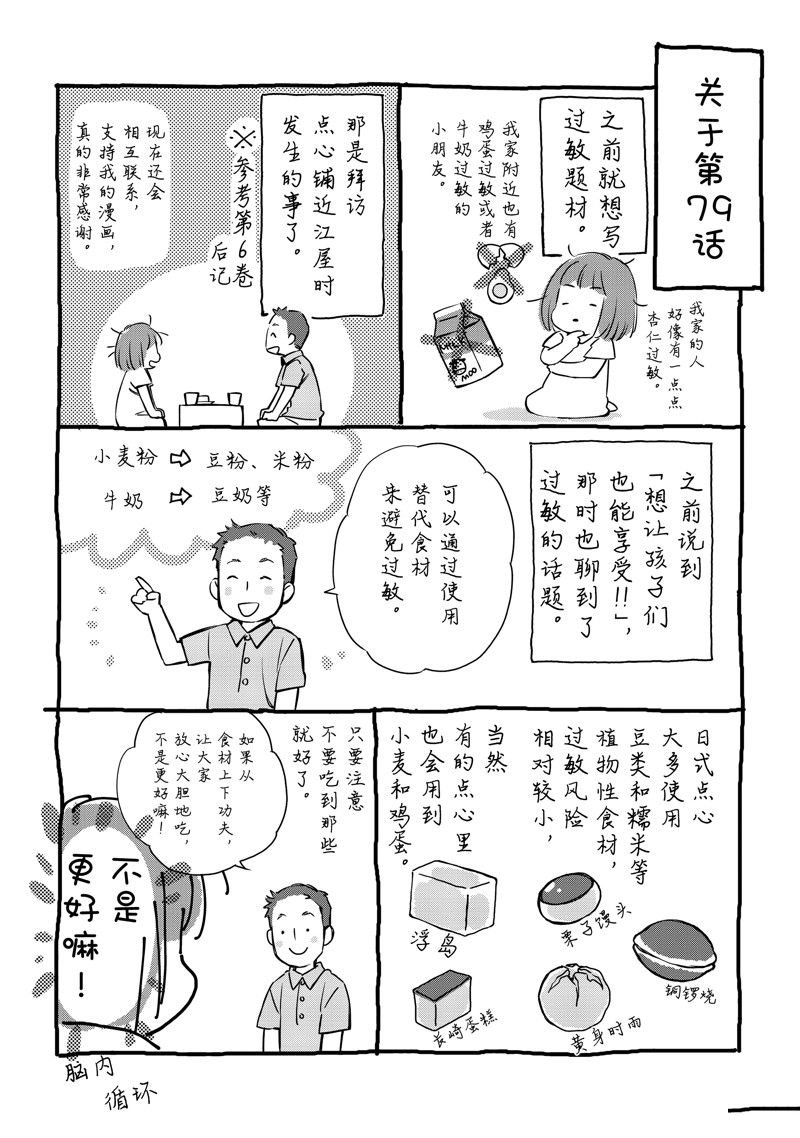 关于第79话
之前就想写
过敏题材。
我家附近也有
鸡蛋过敏或者
牛奶过敏的
小朋友。
MILK
MOO
我家的人
好像有一点点
杏仁过敏。
那是拜访
点心铺近江屋时
发生的事了。
※参考第6卷
后记
现在还会
相互联系，
支持我的漫画，
真的非常感谢。
之前说到
「想让孩子们
也能享受!!」，
那时也聊到了
过敏的话题。
可以通过使用
替代食材
来避免过敏。
小麦粉⇨豆粉、米粉
牛奶⇨豆奶等
日式点心
大多使用
豆类和糯米等
植物性食材，
过敏风险
相对较小，
当然
有的点心里
也会用到
小麦和鸡蛋。
浮岛
栗子馒头
铜锣烧
长崎蛋糕
黄身时雨
只要注意
不要吃到那些
就好了。
如果从
食材上下功夫，
让大家
放心大胆地吃，
不是更好嘛！
不是
更好嘛！
脑内
循环